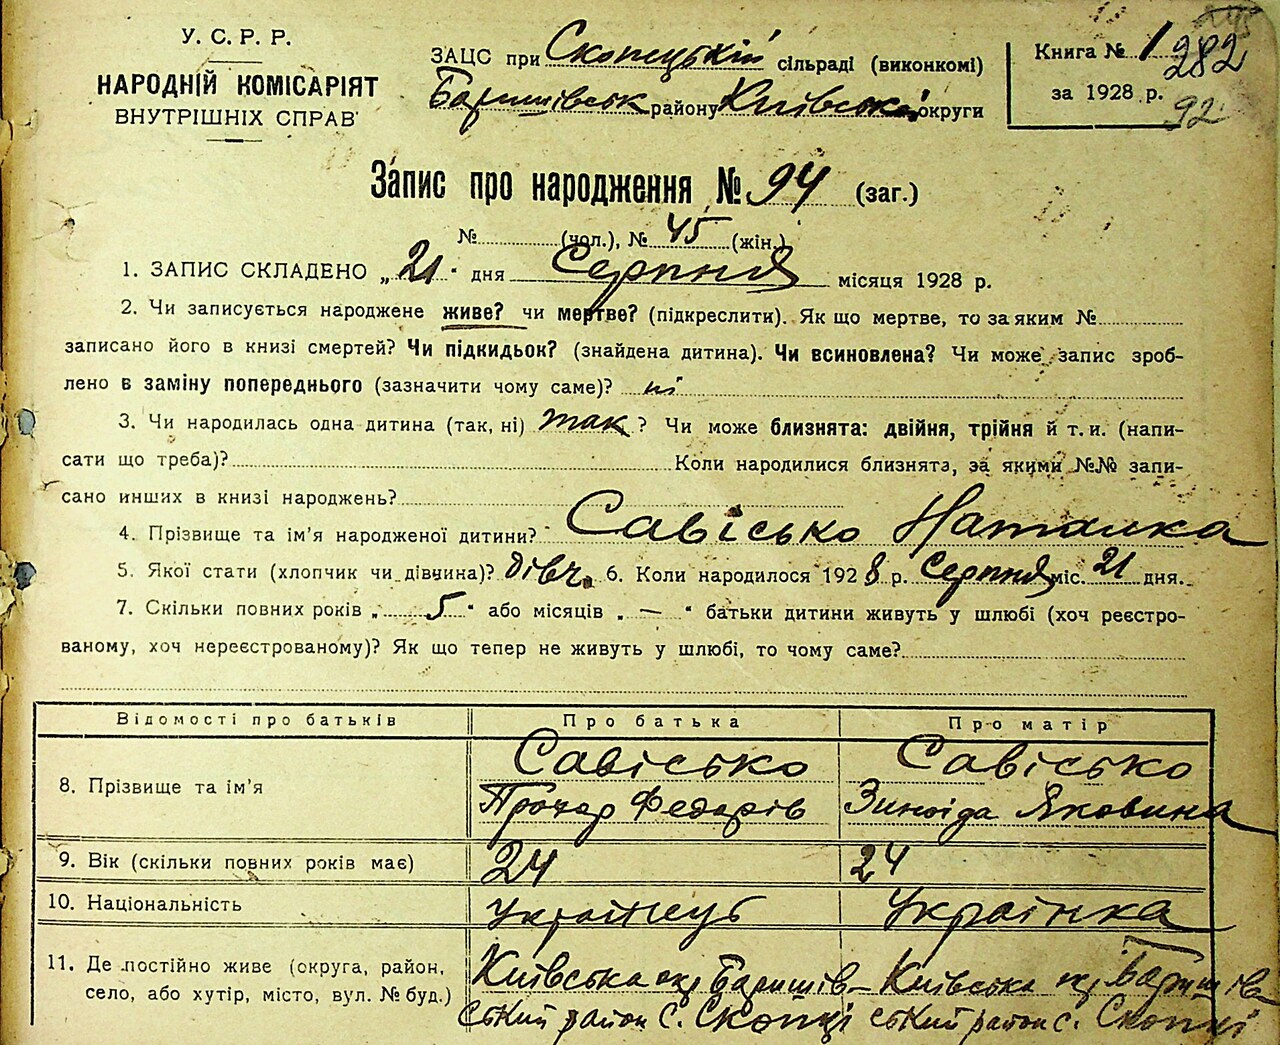 У. С. Р. Р.
НАРОДНІЙ КОМІСАРІЯТ
ВНУТРІШНІХ СПРАВ
ЗАЦС при Скопецькій сільраді (виконкомі)
Баришівськ району Київської округи
Книга № 1
за 1928 р.
282
92
Запис про народження № 94 (заг.)
№ (чол.), № 45 (жін.)
1. ЗАПИС СКЛАДЕНО „21" дня Серпня місяця 1928 р.
2. Чи записується народжене живе? чи мертве? (підкреслити). Як що мертве, то за яким №
записано його в книзі смертей? Чи підкидьок? (знайдена дитина). Чи всиновлена? Чи може запис зроб-
лено в заміну попереднього (зазначити чому саме)? ні
3. Чи народилась одна дитина (так, ні) так ? Чи може близнята: двійня, трійня й т. и. (напи-
сати що треба)? Коли народилися близнята, за якими №№ запи-
сано инших в книзі народжень?
4. Прізвище та ім'я народженої дитини? Савісько Наталка
5. Якої стати (хлопчик чи дівчина)? дівч. 6. Коли народилося 1928 р. Серпня міс. 21 дня.
7. Скільки повних років „ 5 " або місяців „ — " батьки дитини живуть у шлюбі (хоч реєстро-
ваному, хоч нереєстрованому)? Як що тепер не живуть у шлюбі, то чому саме?
Відомості про батьків Про батька Про матір
8. Прізвище та ім'я Савісько Савісько
Прохор Федорів Зиноіда Яковина
9. Вік (скільки повних років має) 24 24
10. Національність Українець Українка
11. Де постійно живе (округа, район, Київська окр Баришів- Київська окр Баришів
село, або хутір, місто, вул. № буд.) ський район с. Скопці ський район с. Скопці